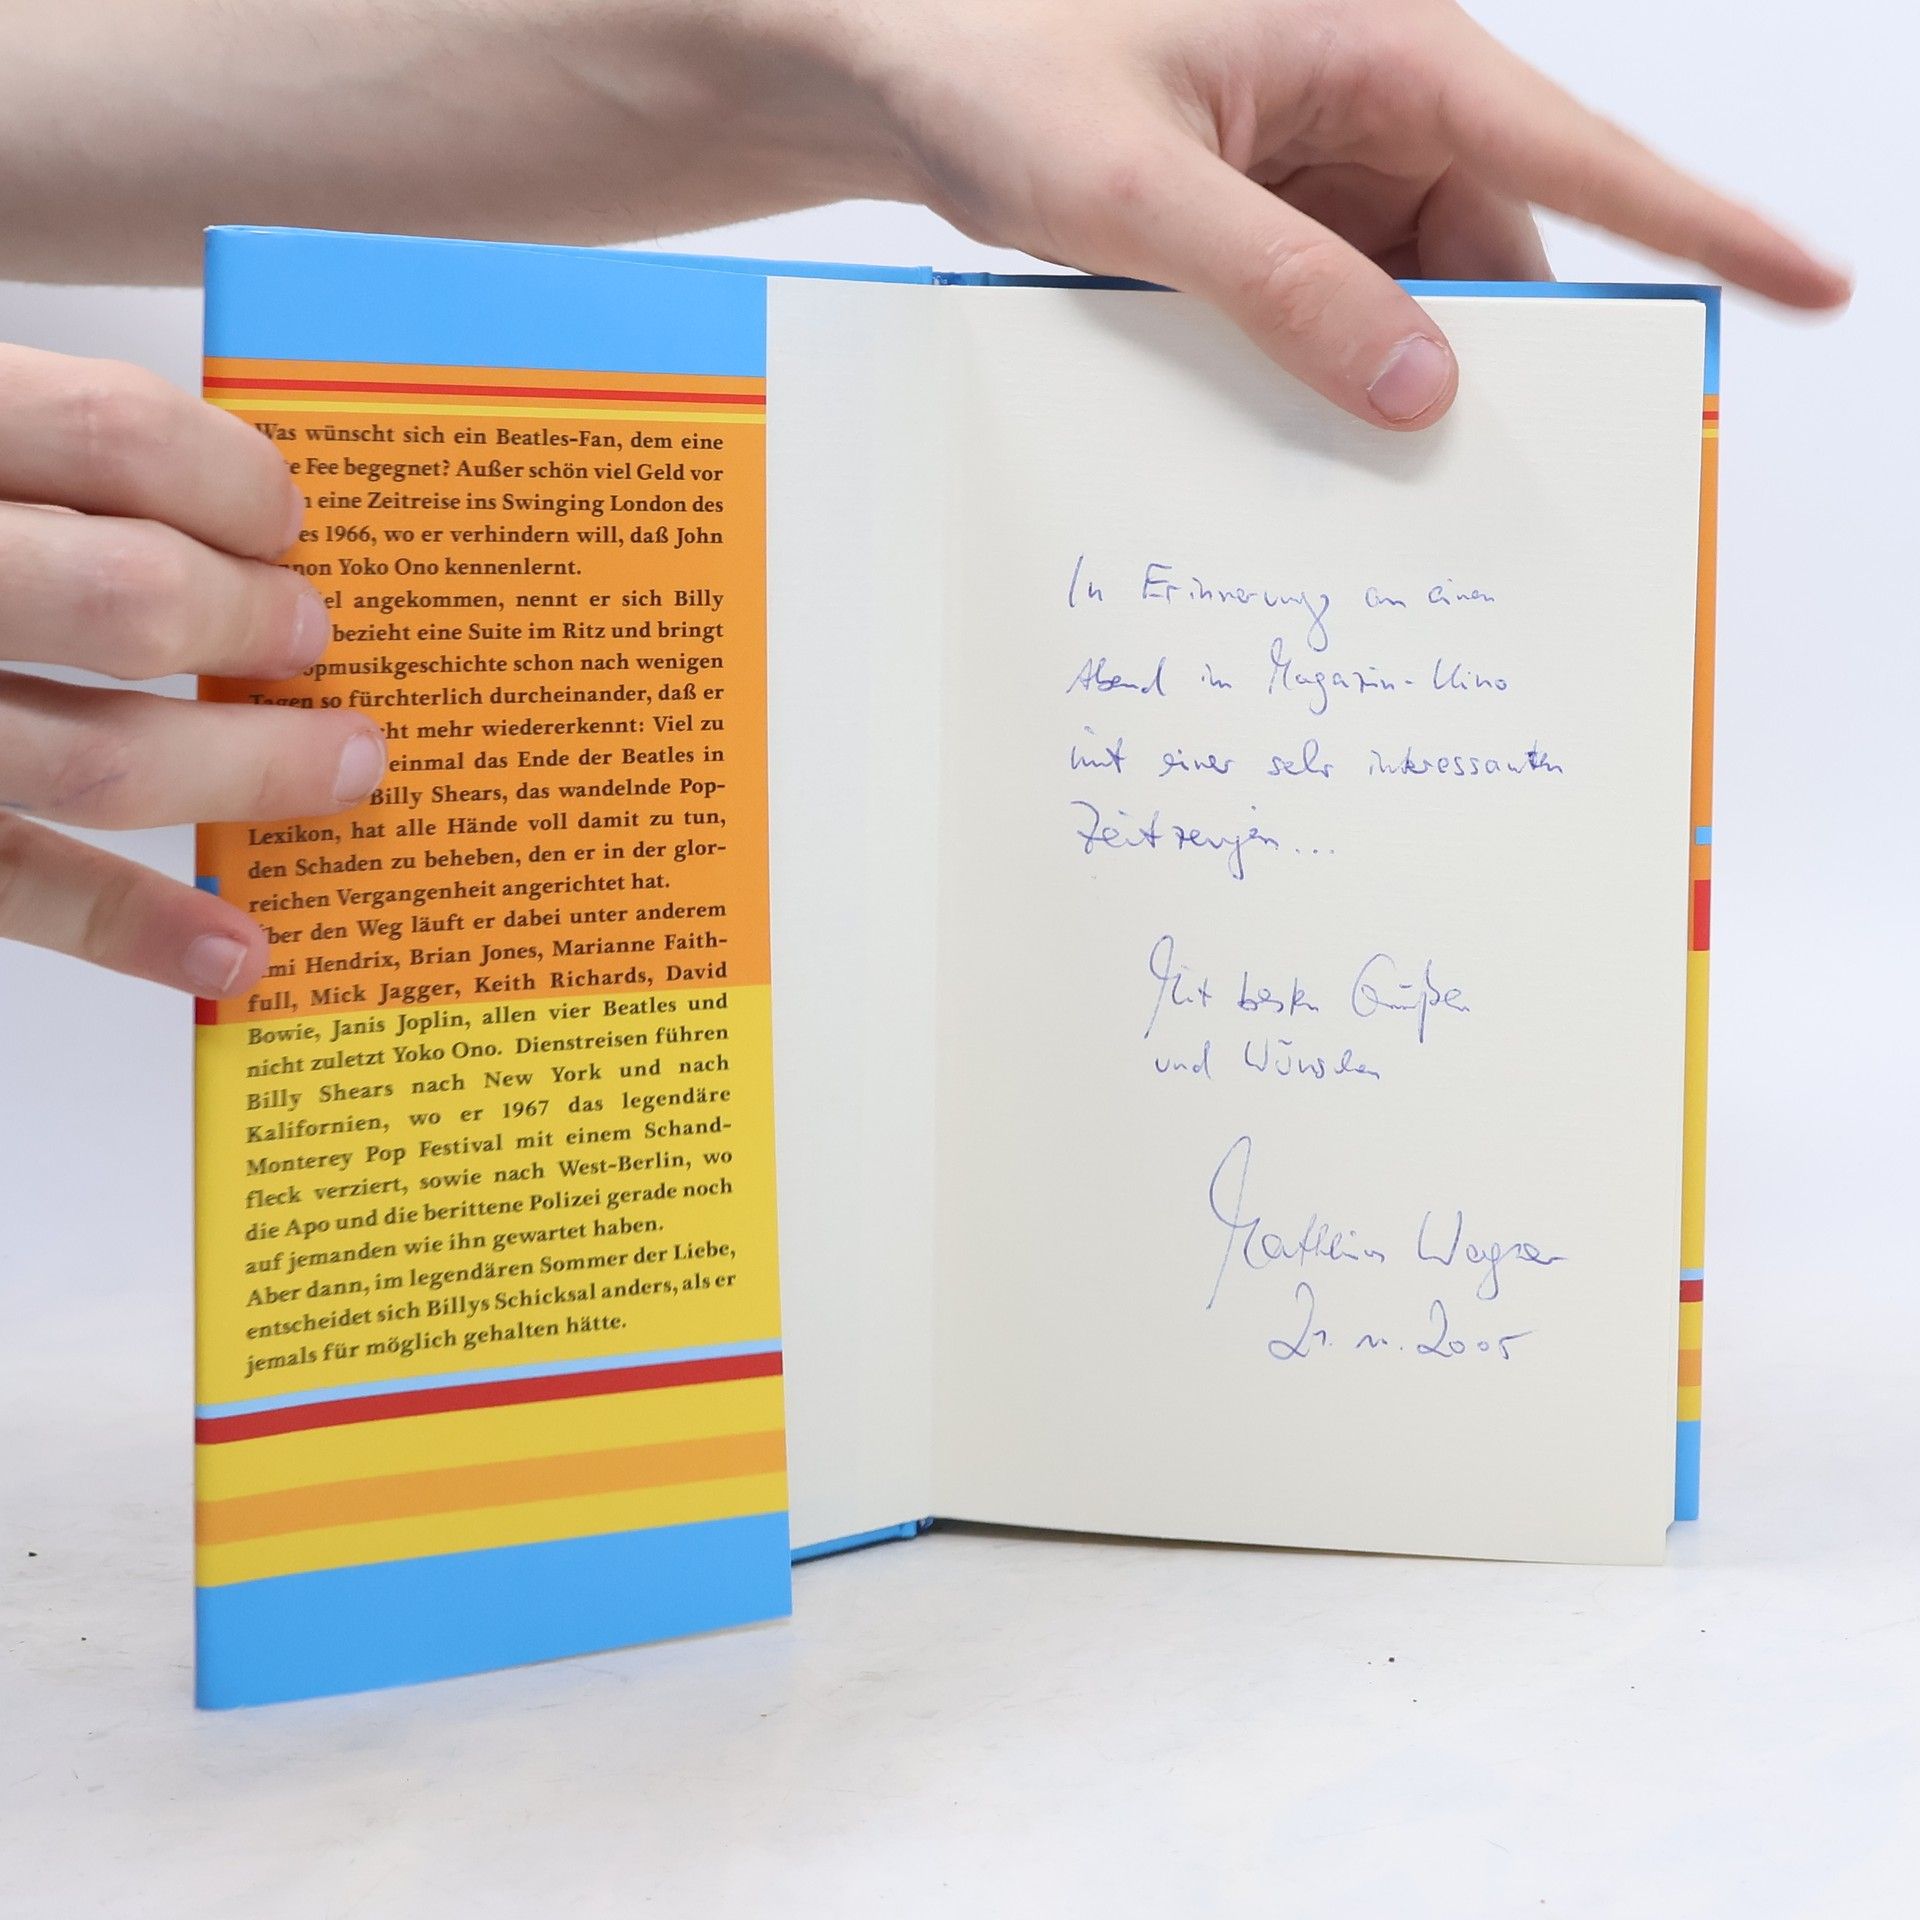 Was wünscht sich ein Beatles-Fan, dem eine
Fee begegnet? Außer schön viel Geld vor
eine Zeitreise ins Swinging London des
1966, wo er verhindern will, daß John
Yoko Ono kennenlernt.
angekommen, nennt er sich Billy
bezieht eine Suite im Ritz und bringt
opmusikgeschichte schon nach wenigen
Tagen so fürchterlich durcheinander, daß er
mehr wiedererkennt: Viel zu
einmal das Ende der Beatles in
Billy Shears, das wandelnde Pop-
Lexikon, hat alle Hände voll damit zu tun,
den Schaden zu beheben, den er in der glor-
reichen Vergangenheit angerichtet hat.
Über den Weg läuft er dabei unter anderem
Hendrix, Brian Jones, Marianne Faith-
full, Mick Jagger, Keith Richards, David
Bowie, Janis Joplin, allen vier Beatles und
nicht zuletzt Yoko Ono. Dienstreisen führen
Billy Shears nach New York und nach
Kalifornien, wo er 1967 das legendäre
Monterey Pop Festival mit einem Schand-
fleck verziert, sowie nach West-Berlin, wo
die Apo und die berittene Polizei gerade noch
auf jemanden wie ihn gewartet haben.
Aber dann, im legendären Sommer der Liebe,
entscheidet sich Billys Schicksal anders, als er
jemals für möglich gehalten hätte.
In Erinnerung an einen
Abend im Magazin-Kino
mit einer sehr interessanten
Zeitzeugin...
Mit besten Grüßen
und Wünschen
Matthias Wagner
21. 10. 2005